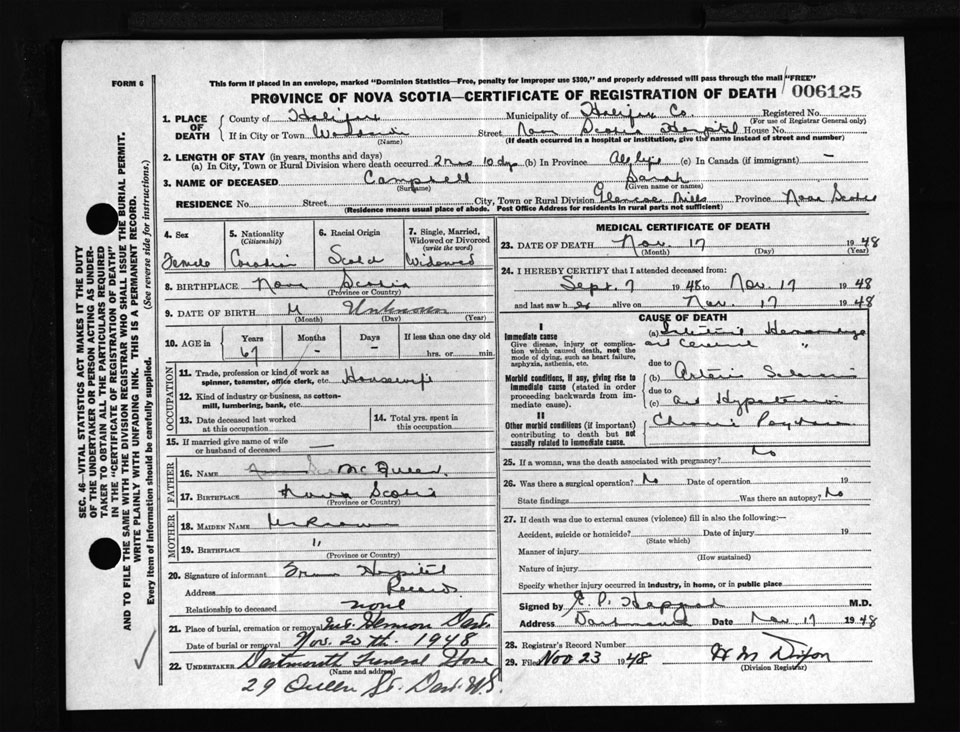 FORM 6
This form if placed in an envelope, marked "Dominion Statistics—Free, penalty for improper use $300," and properly addressed will pass through the mail "FREE"
PROVINCE OF NOVA SCOTIA—CERTIFICATE OF REGISTRATION OF DEATH 006125
1. PLACE OF DEATH
County of Halifax Municipality of Halifax Co. Registered No.
(For use of Registrar General only)
If in City or Town Street Nova Scotia Hospital House No.
(Name) (If death occurred in a hospital or institution, give the name instead of street and number)
2. LENGTH OF STAY (in years, months and days)
(a) In City, Town or Rural Division where death occurred 2 mos 10 dys (b) In Province All life (c) In Canada (if immigrant) —
3. NAME OF DECEASED Campbell Sarah
(Surname) (Given name or names)
RESIDENCE No. Street City, Town or Rural Division Glencoe Mills Province Nova Scotia
(Residence means usual place of abode. Post Office Address for residents in rural parts not sufficient)
4. Sex
Female
5. Nationality
(Citizenship)
Canadian
6. Racial Origin
Scotch
7. Single, Married, Widowed or Divorced
(write the word)
Widowed
8. BIRTHPLACE Nova Scotia
(Province or Country)
9. DATE OF BIRTH Unknown
(Month) (Day) (Year)
10. AGE in Years Months Days If less than one day old
67 - - hrs. or min.
OCCUPATION
11. Trade, profession or kind of work as spinner, teamster, office clerk, etc. Housewife
12. Kind of industry or business, as cotton-mill, lumbering, bank, etc.
13. Date deceased last worked at this occupation
14. Total yrs. spent in this occupation
15. If married give name of wife or husband of deceased —
FATHER
16. NAME McQueen
17. BIRTHPLACE Nova Scotia
MOTHER
18. MAIDEN NAME Unknown
19. BIRTHPLACE "
(Province or Country)
20. Signature of informant From Hospital
Address Records
Relationship to deceased none
21. Place of burial, cremation or removal Mt. Hermon Dart.
Date of burial or removal Nov. 20th. 1948
22. UNDERTAKER Dartmouth Funeral Home
(Name and address)
29 Queen St. Dart. N.S.
MEDICAL CERTIFICATE OF DEATH
23. DATE OF DEATH Nov. 17 1948
(Month) (Day) (Year)
24. I HEREBY CERTIFY that I attended deceased from:
Sept. 7 1948 to Nov. 17 1948
and last saw her alive on Nov. 17 1948
CAUSE OF DEATH
I
Immediate cause
Give disease, injury or complication which caused death, not the mode of dying, such as heart failure, asphyxia, asthenia, etc.
(a) Hemorrhage
and Cerebral "
due to
Morbid conditions, if any, giving rise to immediate cause (stated in order proceeding backwards from immediate cause).
(b) Arterio Sclerosis
due to
(c) and Hypertension
II
Other morbid conditions (if important) contributing to death but not causally related to immediate cause.
Chronic
25. If a woman, was the death associated with pregnancy? No
26. Was there a surgical operation? No Date of operation 19
State findings Was there an autopsy? No
27. If death was due to external causes (violence) fill in also the following:—
Accident, suicide or homicide? Date of injury 19
(State which)
Manner of injury
(How sustained)
Nature of injury
Specify whether injury occurred in industry, in home, or in public place
Signed by M.D.
Address Dartmouth Date Nov. 17 1948
28. Registrar's Record Number
29. Filed Nov 23 1948 H M Dixon
(Division Registrar)
SEC. 46—VITAL STATISTICS ACT MAKES IT THE DUTY
OF THE UNDERTAKER OR PERSON ACTING AS UNDER-
TAKER TO OBTAIN ALL THE PARTICULARS REQUIRED
IN THE "CERTIFICATE OF REGISTRATION OF DEATH"
AND TO FILE THE SAME WITH THE DIVISION REGISTRAR WHO SHALL ISSUE THE BURIAL PERMIT.
WRITE PLAINLY WITH UNFADING INK. THIS IS A PERMANENT RECORD.
Every item of information should be carefully supplied. (See reverse side for instructions.)